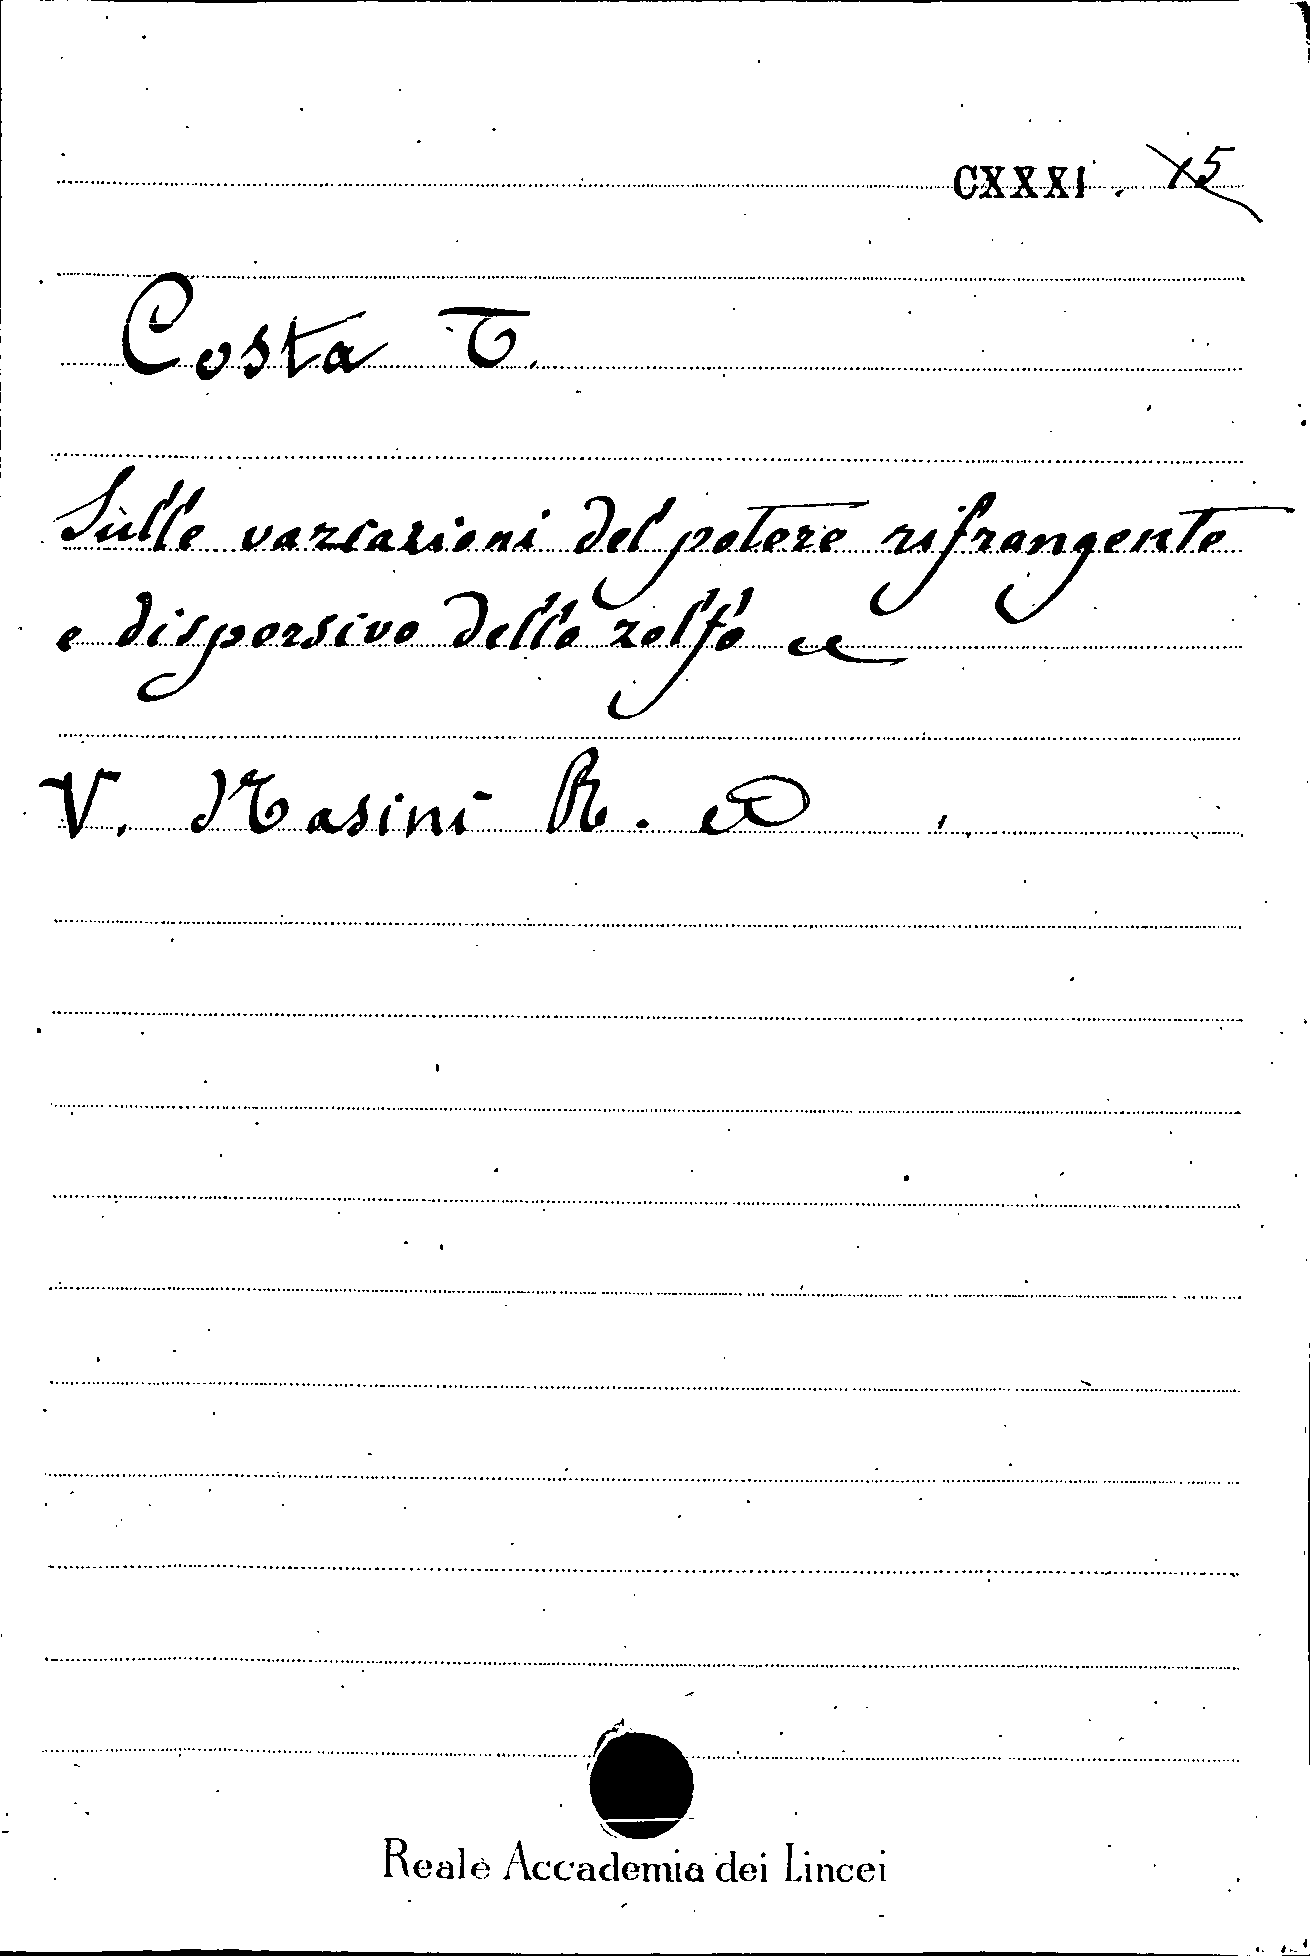 CXXXI. 15
Costa T.
Sulle variazioni del potere rifrangente
e dispersivo dello zolfo
V. Nasini R.
Reale Accademia dei Lincei